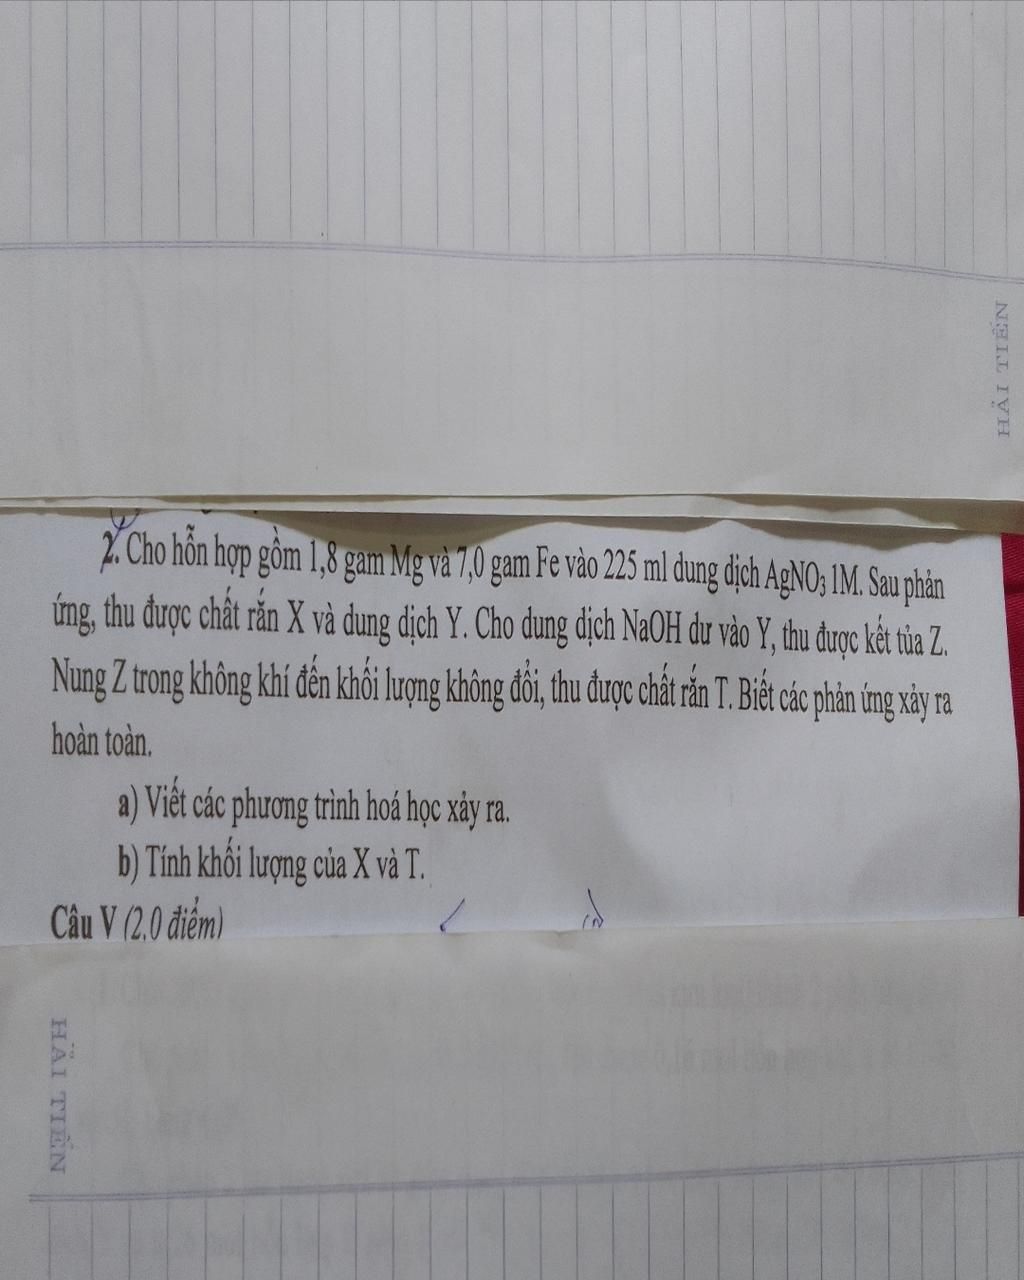 HẢI TIẾN
2. Cho hỗn hợp gồm 1,8 gam Mg và 7,0 gam Fe vào 225 ml dung dịch AgNO₃ 1M. Sau phản
ứng, thu được chất rắn X và dung dịch Y. Cho dung dịch NaOH dư vào Y, thu được kết tủa Z.
Nung Z trong không khí đến khối lượng không đổi, thu được chất rắn T. Biết các phản ứng xảy ra
hoàn toàn.
a) Viết các phương trình hoá học xảy ra.
b) Tính khối lượng của X và T.
Câu V (2,0 điểm)
HẢI TIẾN